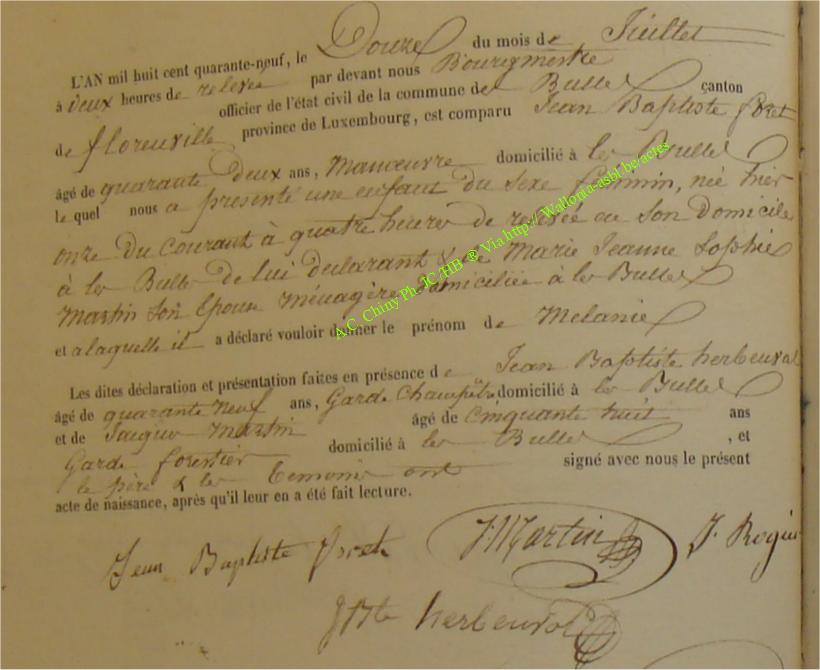 L'AN mil huit cent quarante-neuf, le Douze du mois de Juillet
à deux heures de relevée par devant nous Bourgmestre
officier de l'état civil de la commune de Bulles canton
de florenville province de Luxembourg, est comparu Jean Baptiste foret
âgé de quarante deux ans, Manœuvre domicilié à les Bulles
le quel nous a présenté une enfant du sexe féminin, née hier
onze du courant à quatre heures de relevée en son Domicile
à les Bulles de lui déclarant & de Marie Jeanne Sophie
Martin son épouse Ménagère domiciliée à les Bulles
et a laquelle il a déclaré vouloir donner le prénom de Mélanie
Les dites déclaration et présentation faites en présence de Jean Baptiste herbeuval
âgé de quarante neuf ans, Garde Champêtre, domicilié à les Bulles
et de Jacques Martin âgé de Cinquante huit ans
Garde forestier domicilié à les Bulles, et
le père & les temoins ont signé avec nous le présent
acte de naissance, après qu'il leur en a été fait lecture.
Jean Baptiste foret J. Martin J. Rogier
JBte herbeuval
A.C. Chiny Ph JC /HB ® Via http:// Wallonia-asbl.be/actes